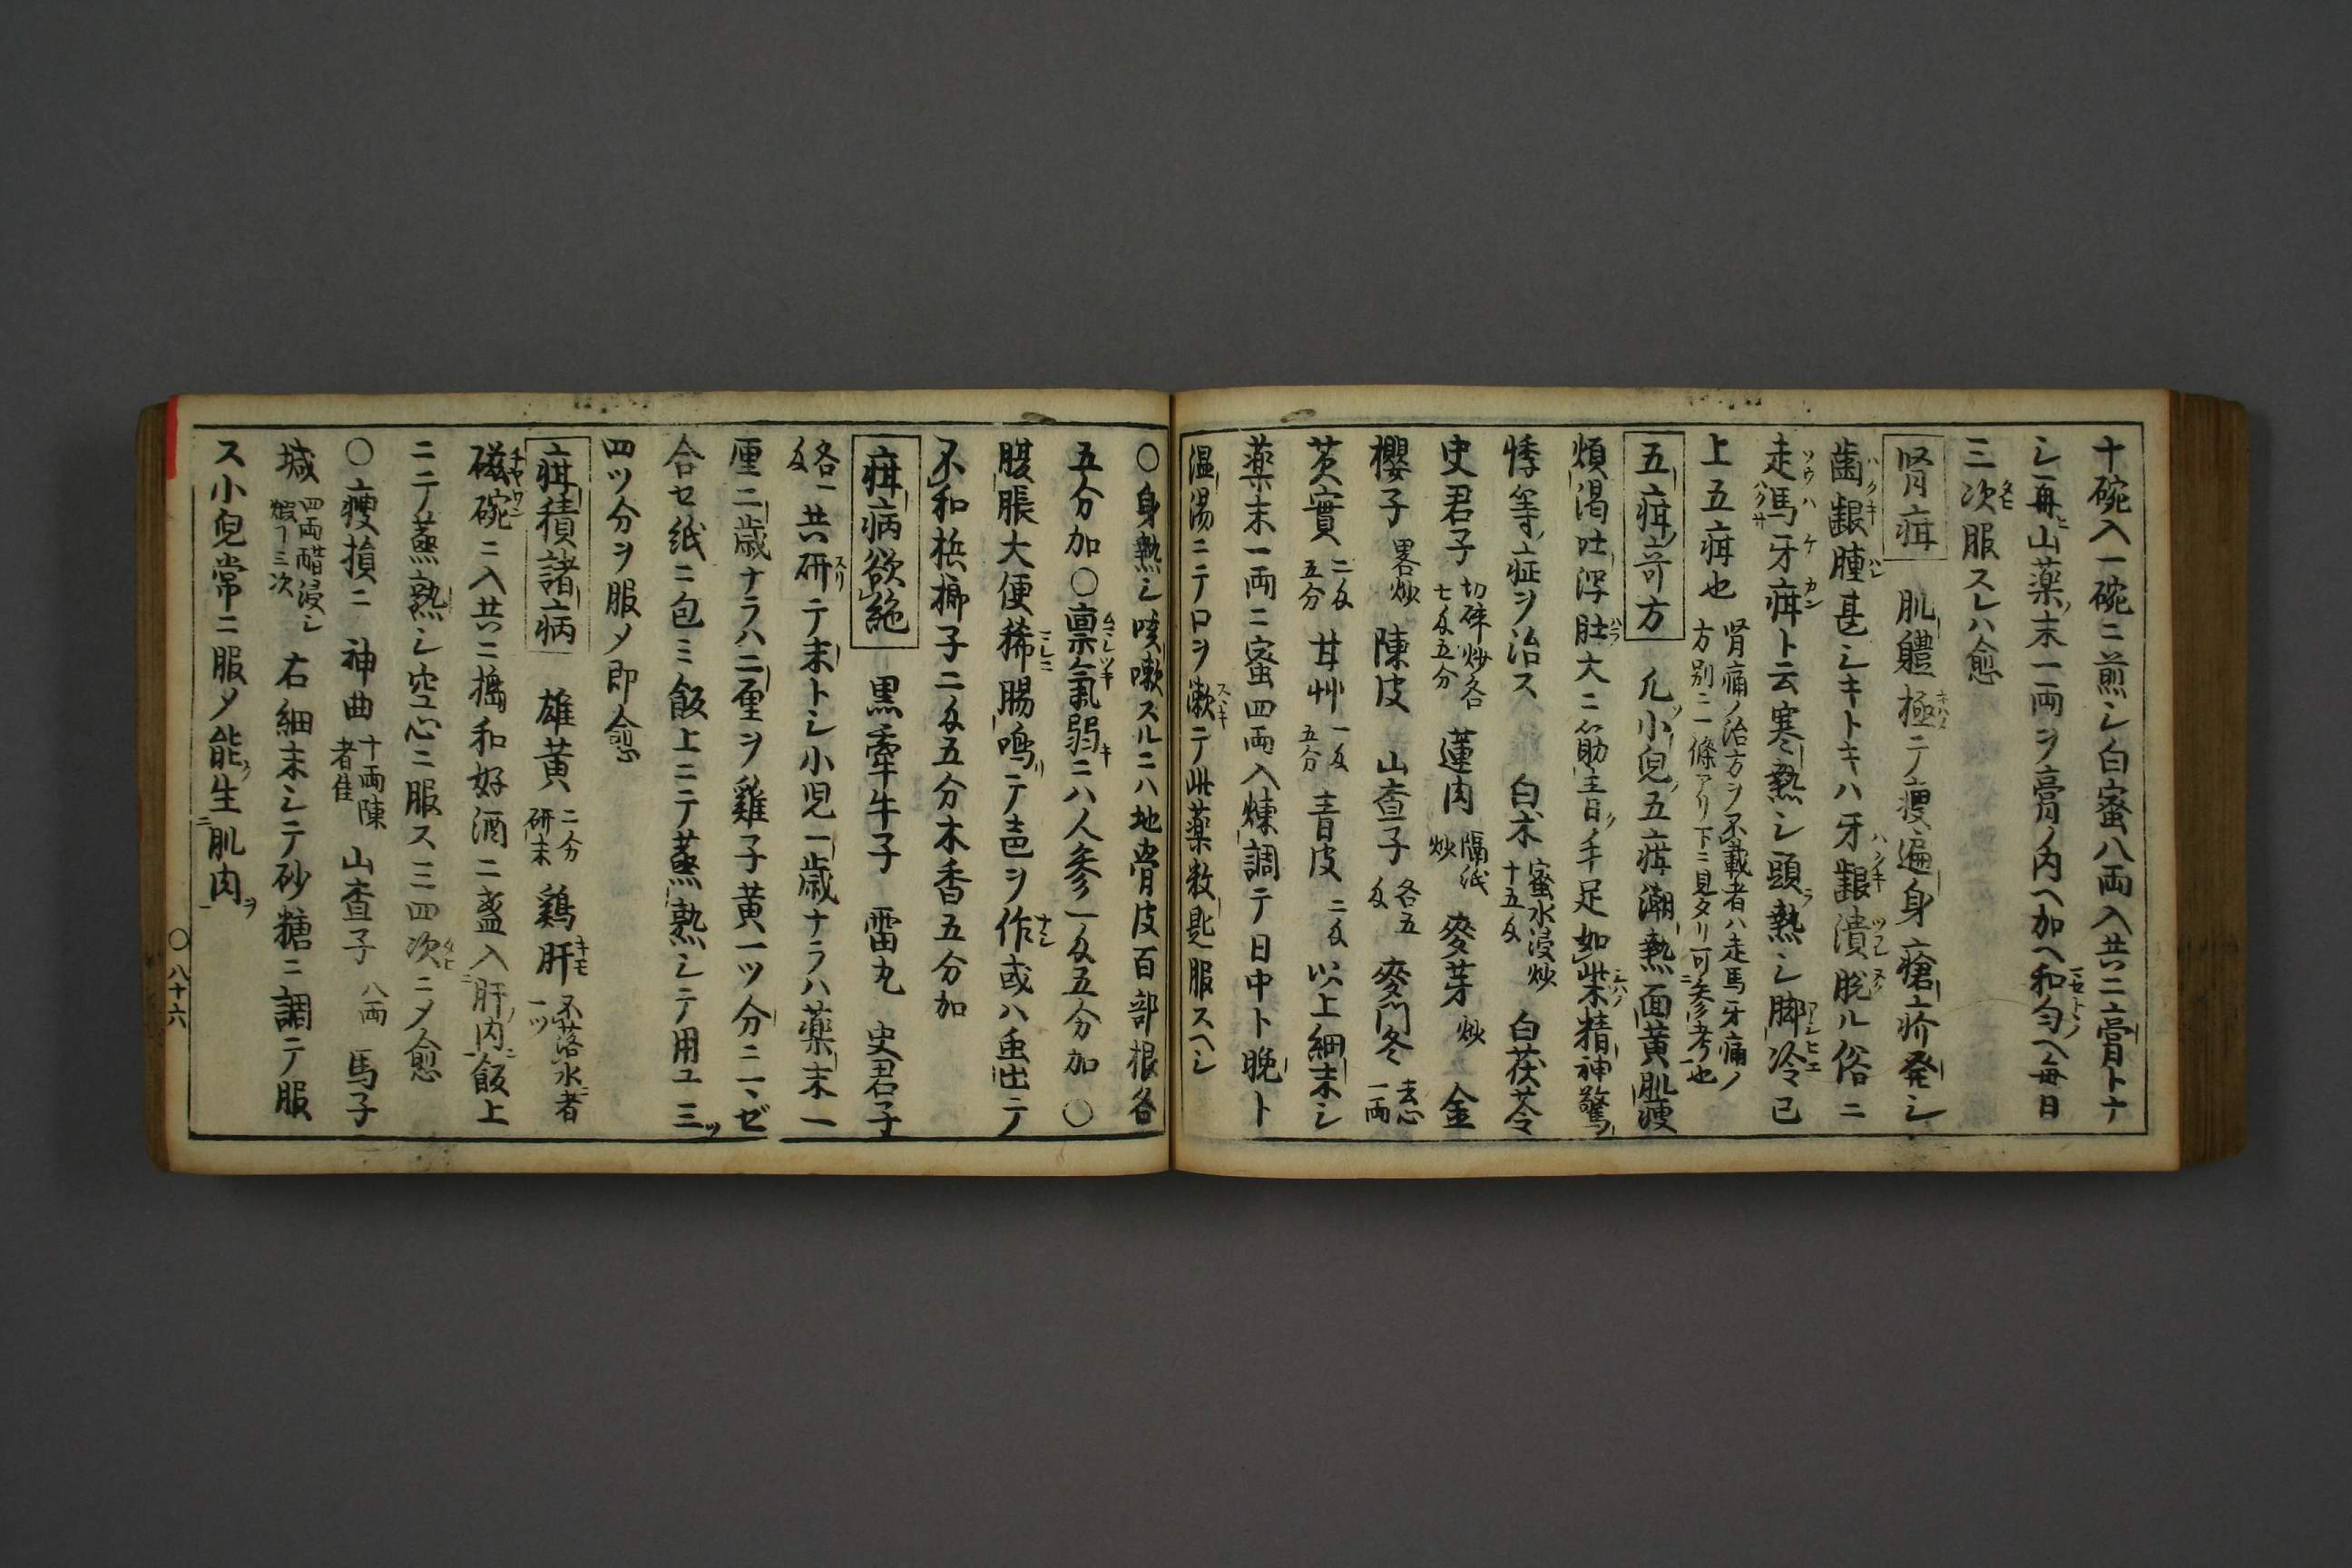 十碗入一碗ニ煎シ白蜜八両入共ニ膏トナ
シ再ヒ山薬ノ末一両ヲ膏ノ内ヘ加ヘ和匀ヘ毎日
三次服スレハ愈
腎疳 肌軆極テ痩遍身瘡疥発シ
歯齦腫甚シキトキハ牙齦潰脱ル俗ニ
走馬牙疳ト云寒熱シ頭熱シ脚冷已
上五疳也 腎痛ノ治方ヲ不載者ハ走馬牙痛ノ
方別ニ一條アリ下ニ見タリ可参考也
五疳奇方 凡小児五疳潮熱面黄肌痩
煩渇吐瀉肚大ニ筋生日ノ手足如柴精神驚
悸等ノ症ヲ治ス 白朮 蜜水浸炒十五匁 白茯苓
史君子 切碎炒各七匁五分 蓮肉 隔紙炒 麥芽 炒 金
櫻子 畧炒 陳皮 山査子 各五匁 麥門冬 去心一両
芡實 二匁五分 甘艸 一匁五分 青皮 二匁 以上細末シ
薬末一両ニ蜜四両入煉調テ日中ト晩ト
温湯ニテ口ヲ漱テ此薬数匙服スヘシ
○身熱シ咳嗽スルニハ地骨皮百部根各
五分加○禀氣弱キニハ人参一匁五分加○
腹脹大便稀腸鳴リテ声ヲ作或ハ虫出テ
不和梹榔子二匁五分木香五分加
疳病欲絶 黒牽牛子 雷丸 史君子
各一匁 共研テ末トシ小児一歳ナラハ薬末一
厘二歳ナラハ二厘ヲ雞子黄一ツ分ニマゼ
合セ紙ニ包ミ飯上ニテ蒸熟シテ用ユ三ツ
四ツ分ヲ服メ即愈
疳積諸病 雄黄 二分研末 鶏肝 不落水者一ツ
磁碗ニ入共ニ擣和好酒二盞入肝内飯上
ニテ蒸熟シ空心ニ服ス三四次ニメ愈
○痩損ニ 神曲 十両陳者佳 山査子 八両 馬子
堿 四両醋浸シ煆フ三次 右細末シテ砂糖ニ調テ服
ス小児常ニ服メ能生肌肉
○八十六